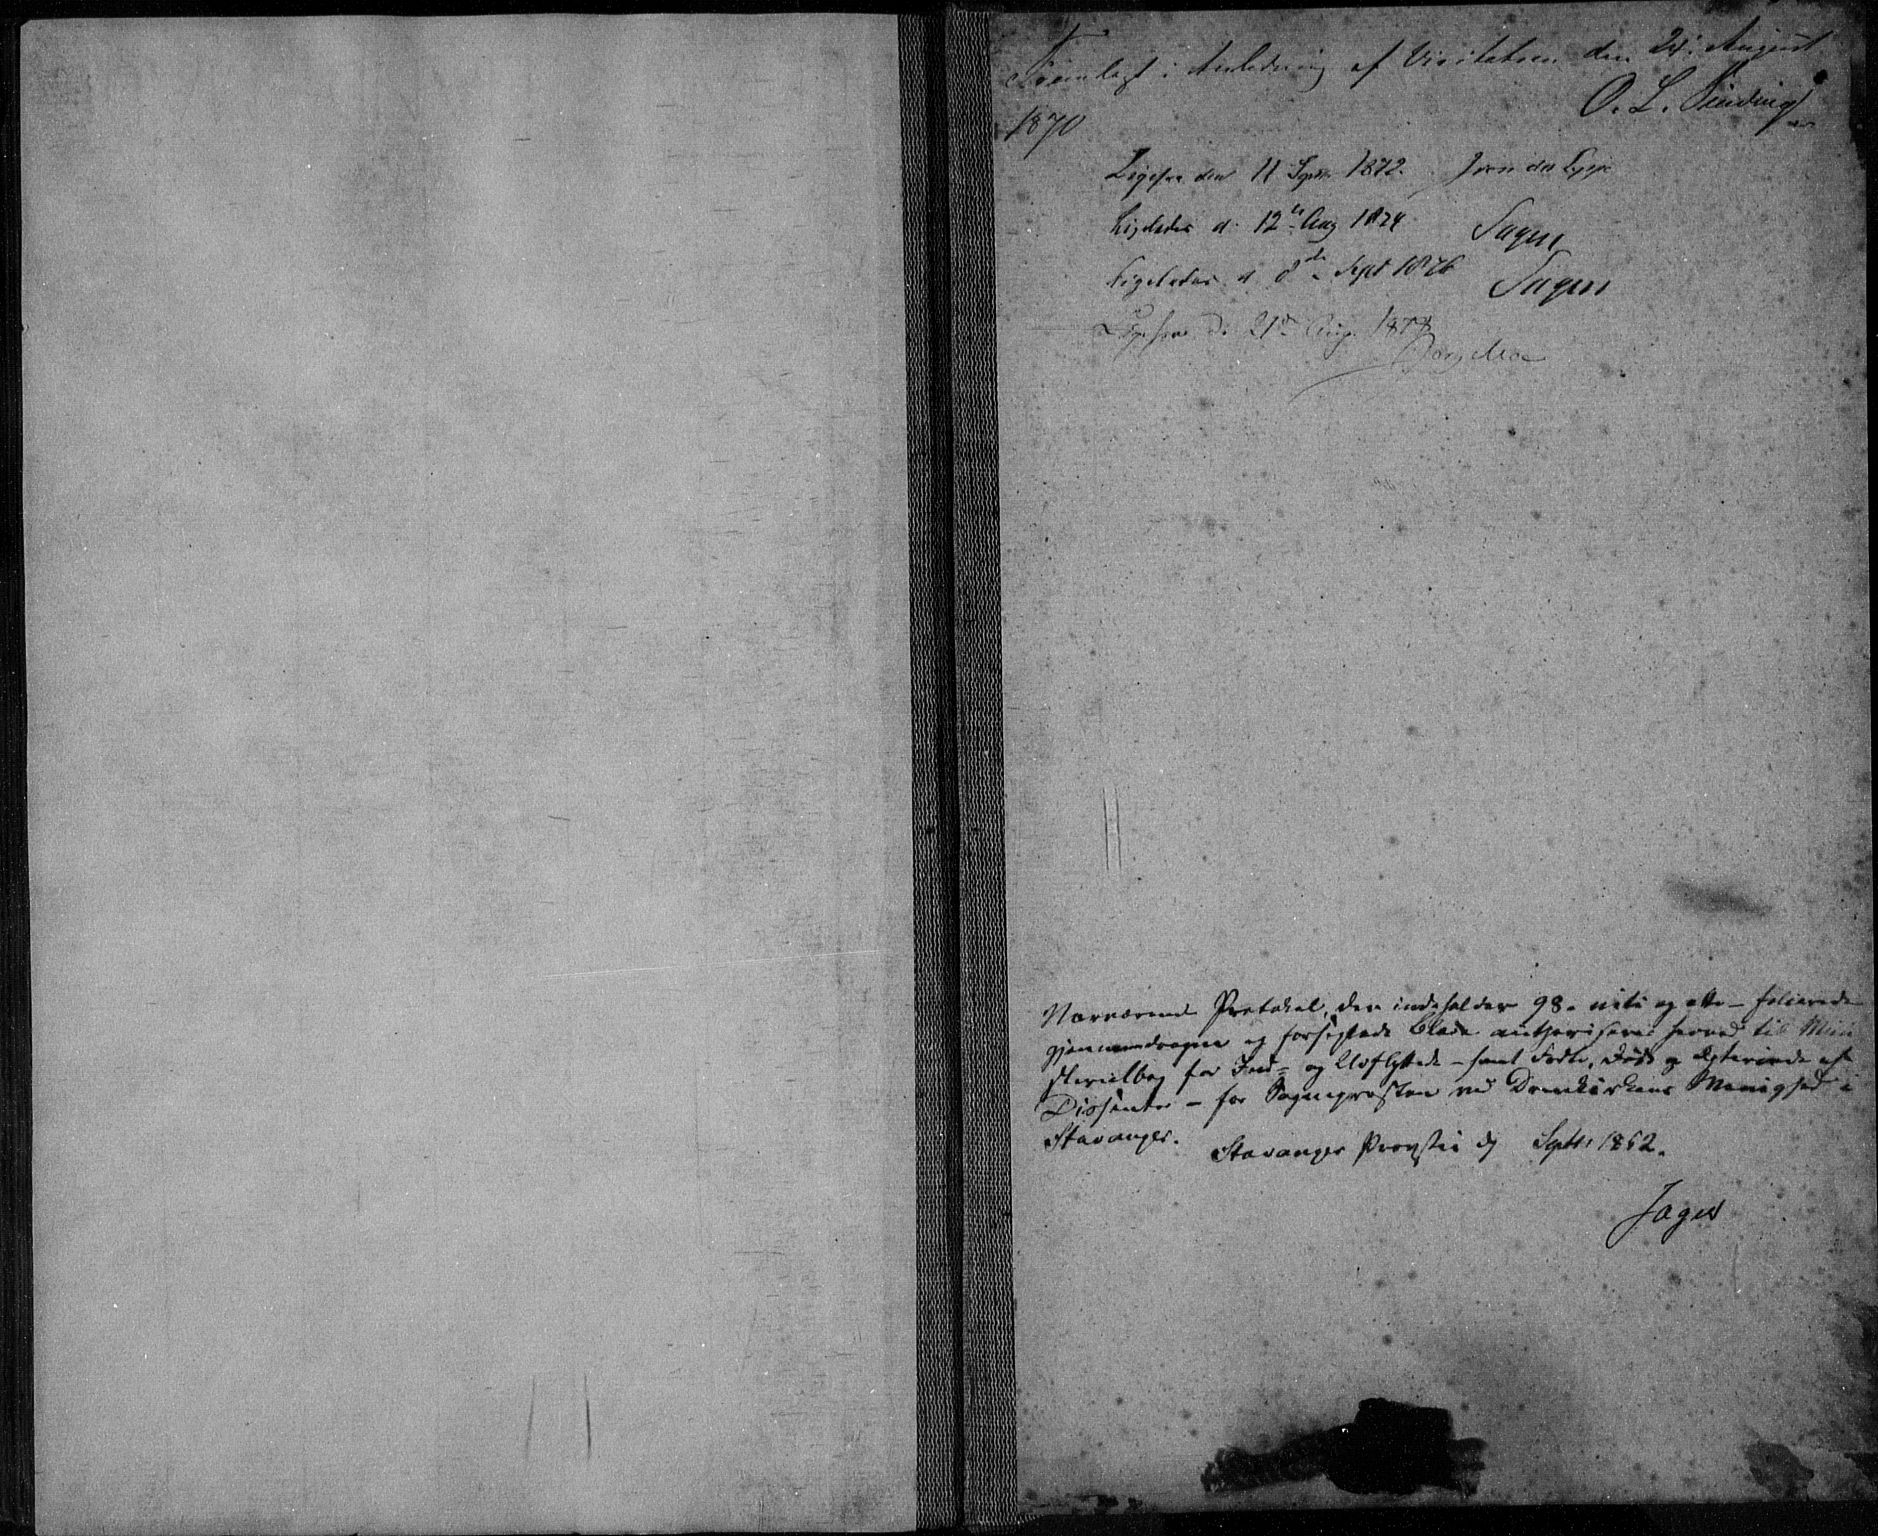 Fremlagt i Anledning af Visitatsen den 24. August
1870
O. L. Sinding
Ligesaa den 11 Septr. 1872. Jørn
Ligeledes d. 12te Aug 1874
Ligeledes d 8de Sept 1876
Ligesaa d. 21de Aug. 1878
Nærværende Protokol, der indeholder 98 - niti og otte - folierede
gjennemdragne og forseglede Blade authoriseres herved til Mini
sterialbog for Ind- og Udflyttede - samt Fødte, Døde og Egteviede af
Dissenter - for Sognepresten ved Domkirkens Menighed i
Stavanger.
Stavanger Provsti d Septr 1862.